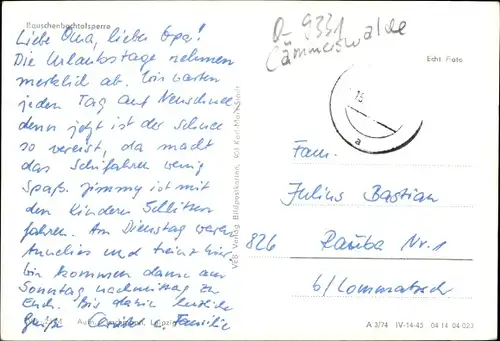 Rauschenbachtalsperre
Liebe Oma, lieber Opa!
Die Urlaubstage nehmen
merklich ab. Wir warten
jeden Tag auf Neuschnee
denn jetzt ist der Schnee
so vereist, da macht
das Schifahren wenig
Spaß. Jimmy ist mit
den Kindern Schlitten
fahren. Am Dienstag waren
Annelies und hier.
Wir kommen dann am
Sonntag nachmittag zu
Euch. Bis dahin herzliche
Grüße Familie
VEB Verlag Bildpostkarten, 901 Karl-Marx-Stadt
D-9331
Cämmerswalde
Echt Foto
15
a
Fam.
Julius Bastian
826 Rauba Nr. 1
b/Lommatzsch
A 3/74 IV-14-45 04 14 04 023